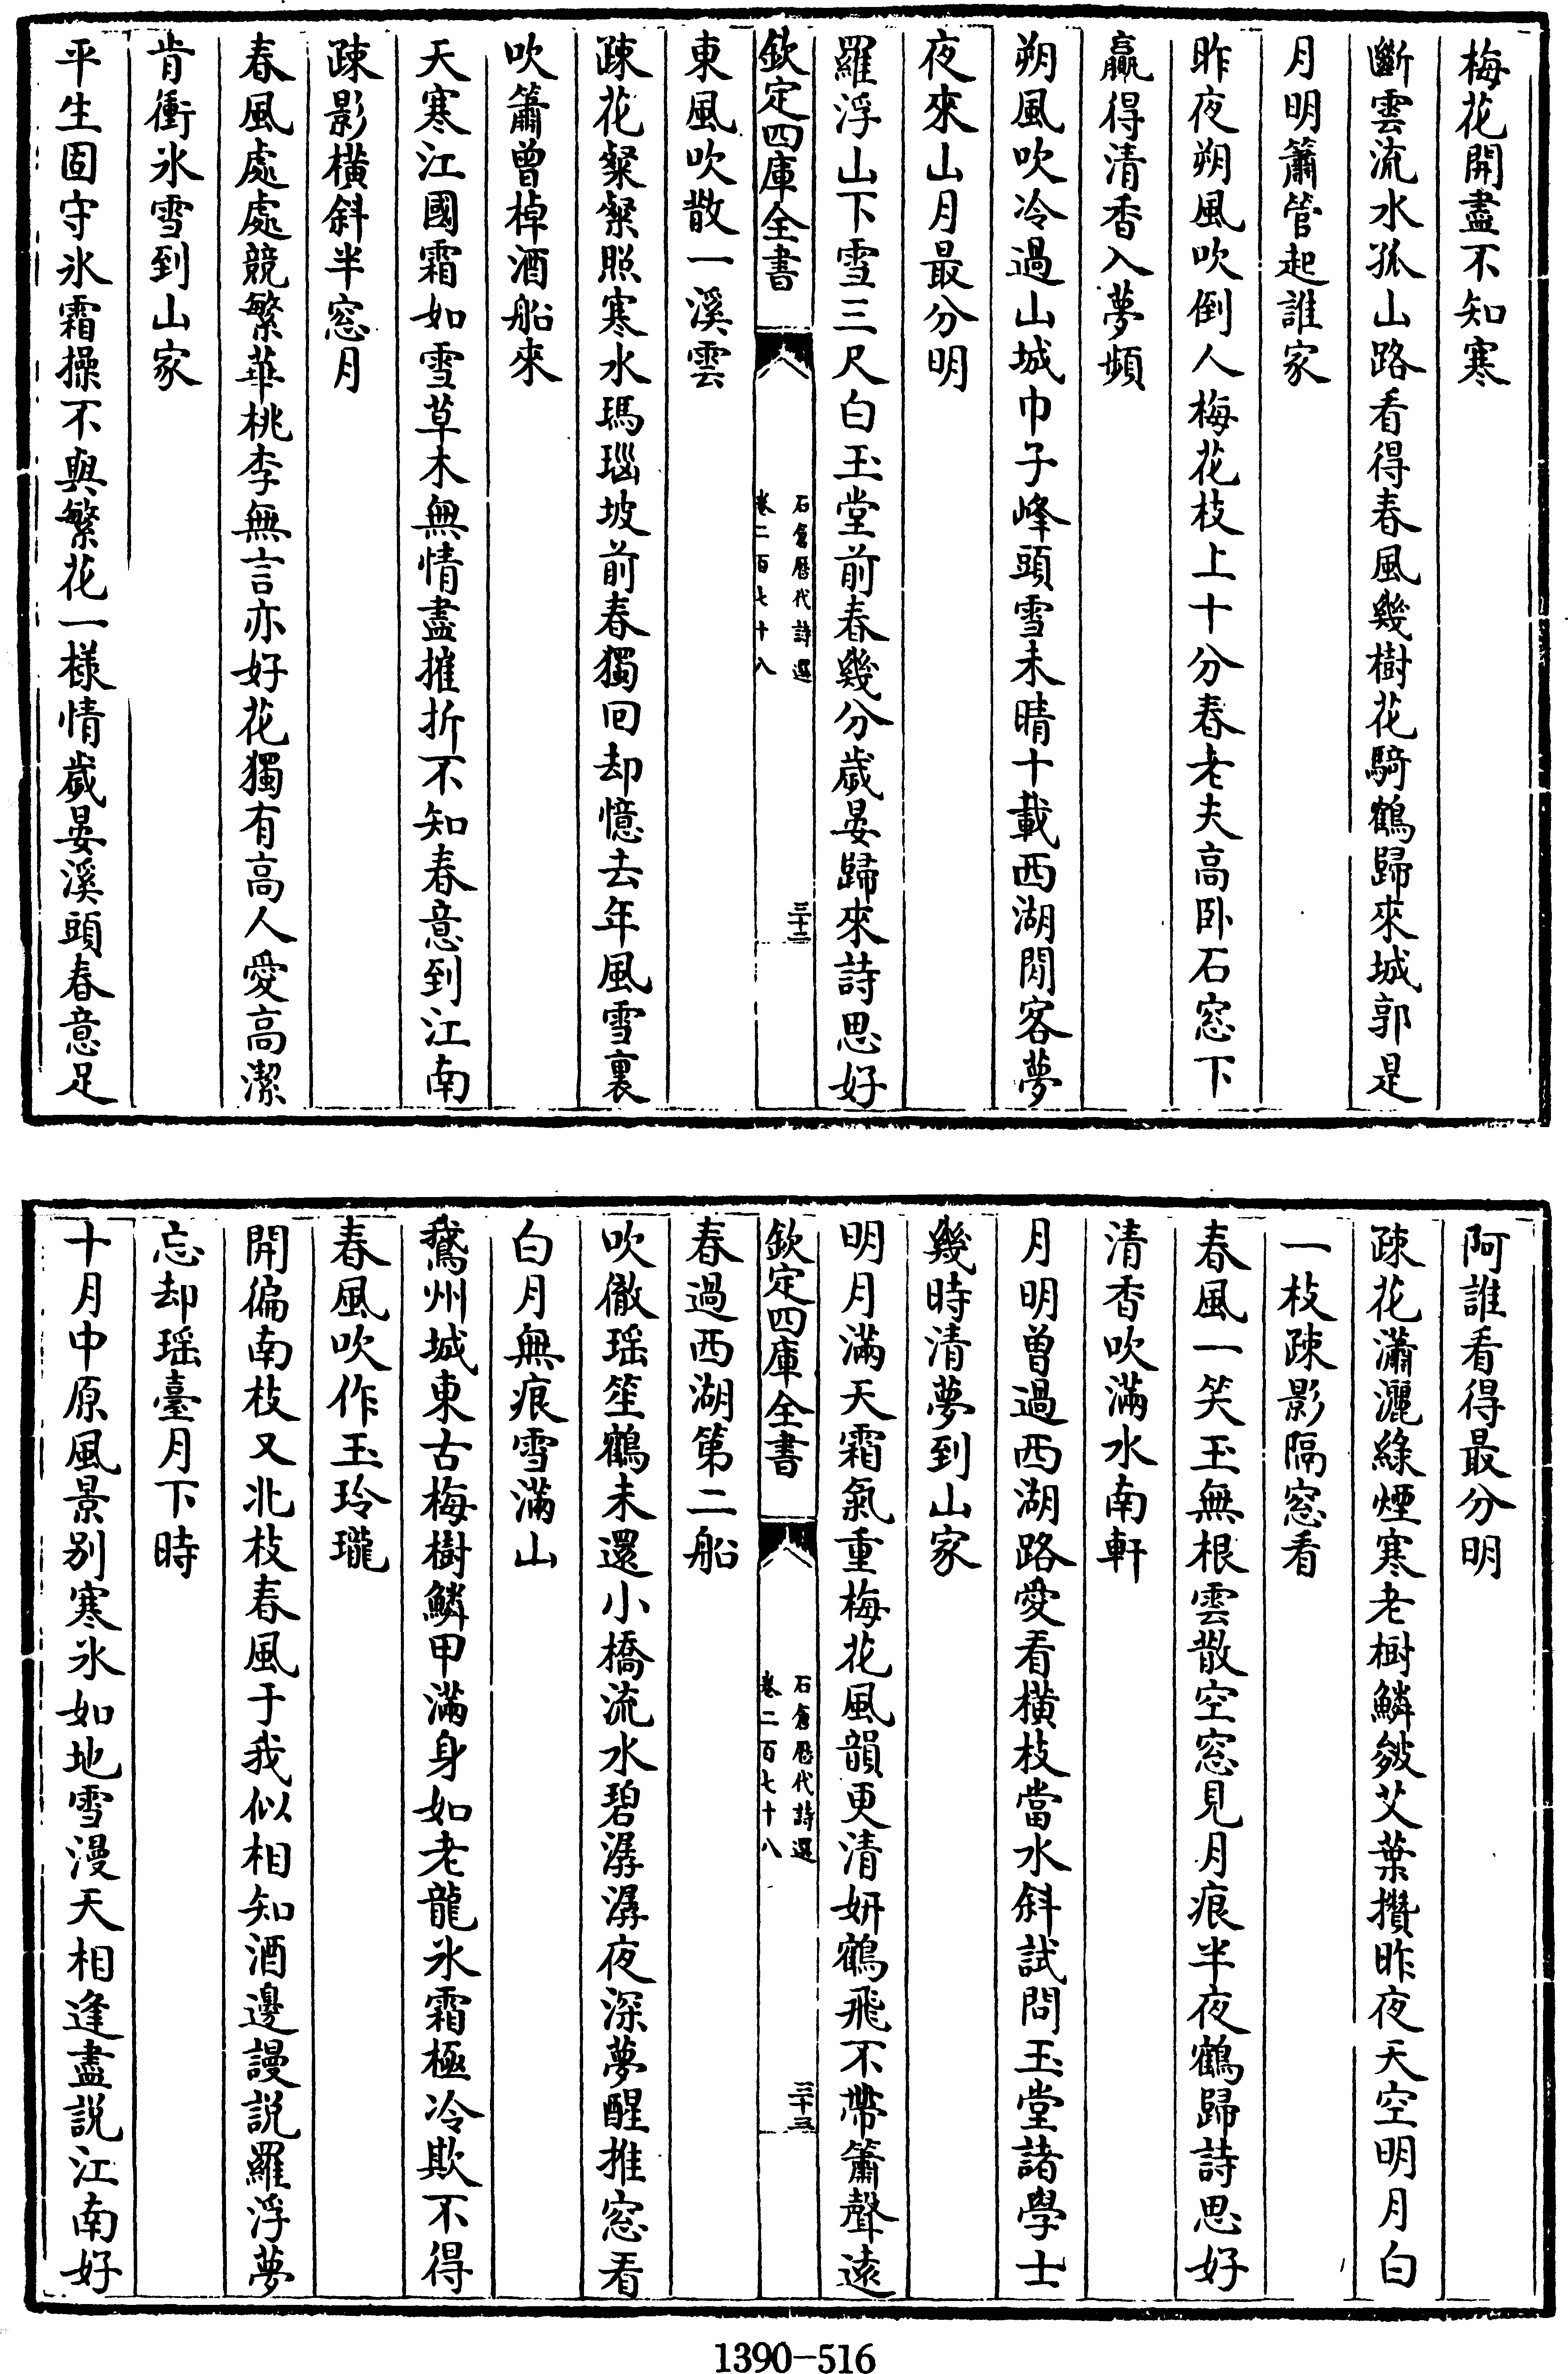 梅花開盡不知寒
斷雲流水孤山路看得春風幾樹花騎鶴歸來城郭是
月明簫管起誰家
昨夜朔風吹倒人梅花枝上十分春老夫高卧石窓下
贏得清香入夢頻
朔風吹冷過山城巾子峰頭雪未晴十載西湖閒客夢
夜來山月最分明
羅浮山下雪三尺白玉堂前春幾分歲晏歸來詩思好
欽定四庫全書
石倉歷代詩選
卷二百七十八
三十二
東風吹散一溪雲
疎花粲粲照寒水瑪瑙坡前春獨回却憶去年風雪裏
吹簫曾棹酒船來
天寒江國霜如雪草木無情盡摧折不知春意到江南
疎影橫斜半窓月
春風處處競繁華桃李無言亦好花獨有高人愛高潔
肯衝氷雪到山家
平生固守氷霜操不與繁花一樣情歲晏溪頭春意足
阿誰看得最分明
疎花瀟灑綠煙寒老樹鱗皴艾葉攢昨夜天空明月白
一枝疎影隔窓看
春風一笑玉無根雲散空窓見月痕半夜鶴歸詩思好
清香吹滿水南軒
月明曾過西湖路愛看橫枝當水斜試問玉堂諸學士
幾時清夢到山家
明月滿天霜氣重梅花風韻更清妍鶴飛不帶簫聲遠
欽定四庫全書
石倉歷代詩選
卷二百七十八
三十三
春過西湖第二船
吹徹瑤笙鶴未還小橋流水碧潺潺夜深夢醒推窓看
白月無痕雪滿山
鵞州城東古梅樹鱗甲滿身如老龍氷霜極冷欺不得
春風吹作玉玲瓏
開徧南枝又北枝春風于我似相知酒邊謾説羅浮夢
忘却瑤臺月下時
十月中原風景别寒氷如地雪漫天相逢盡説江南好
1390-516